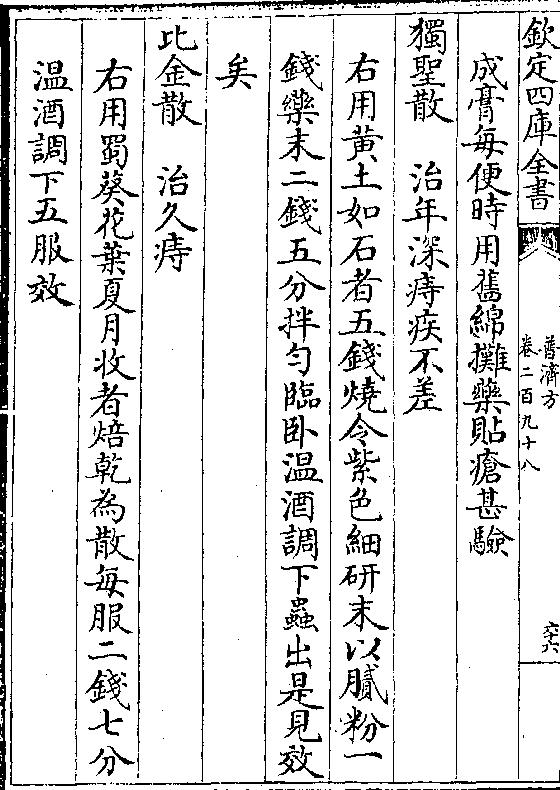 欽定四庫全書
普濟方
卷二百九十八
六
成膏每便時用舊綿攤藥貼瘡甚驗
獨聖散　治年深痔疾不差
右用黃土如石者五錢燒令紫色細研末以膩粉一
錢藥末二錢五分拌勻臨卧温酒調下蟲出是見效
矣
比金散　治久痔
右用蜀葵花葉夏月收者焙乾為散每服二錢七分
温酒調下五服效